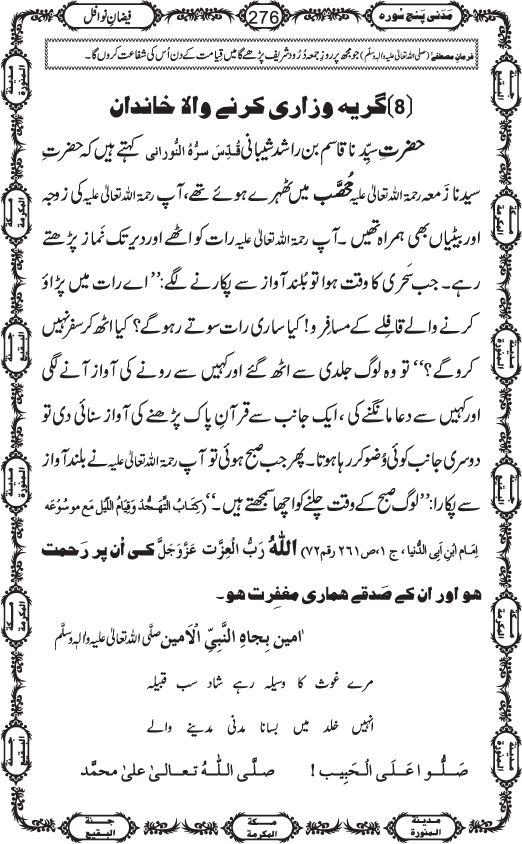 مَدَنی پنج سورہ
276
فیضانِ نوافل
فرمانِ مصطفےٰ (صلی اللہ تعالیٰ علیہ والہٖ وسلَّم) جو مجھ پر روزِ جمعہ دُرُود شریف پڑھے گا میں قیامت کے دن اُس کی شفاعت کروں گا۔
(8) گریہ وزاری کرنے والا خاندان
حضرتِ سیِّدنا قاسم بن راشد شیبانی قُدِّسَ سرُّہُ النُّورانی کہتے ہیں کہ حضرتِ
سیدنا زَمعہ رحمۃ اللہ تعالیٰ علیہ مُحَصَّب میں ٹھہرے ہوئے تھے، آپ رحمۃ اللہ تعالیٰ علیہ کی زوجہ
اور بیٹیاں بھی ہمراہ تھیں۔ آپ رحمۃ اللہ تعالیٰ علیہ رات کو اٹھے اور دیر تک نَماز پڑھتے
رہے۔ جب سَحَری کا وقت ہوا تو بُلند آواز سے پکارنے لگے: ’’اے رات میں پڑاؤ
کرنے والے قافلے کے مسافِرو! کیا ساری رات سوتے رہوگے؟ کیا اٹھ کر سفر نہیں
کروگے؟‘‘ تو وہ لوگ جلدی سے اٹھ گئے اور کہیں سے رونے کی آواز آنے لگی
اور کہیں سے دعا مانگنے کی، ایک جانب سے قرآنِ پاک پڑھنے کی آواز سنائی دی تو
دوسری جانب کوئی وُضو کر رہا ہوتا۔ پھر جب صبح ہوئی تو آپ رحمۃ اللہ تعالیٰ علیہ نے بلند آواز
سے پکارا: ’’لوگ صبح کے وقت چلنے کو اچھا سمجھتے ہیں۔‘‘ (کِتابُ التَّھَجُّد وَقِیامُ اللَّیْل مَع مَوْسُوْعَہ
اِمَام اِبْنِ اَبِی الدُّنیا، ج ۱، ص ۲۶۱ رقم ۷۲) اَللہُ رَبُّ الْعِزَّت عَزَّوَجَلَّ کی اُن پر رَحمت
ہو اور ان کے صَدقے ہماری مغفِرت ہو۔
اٰمین بِجاہِ النَّبِیِّ الْاَمین صلَّی اللہ تعالیٰ علیہ والہٖ وسلَّم
مرے غوث کا وسیلہ رہے شاد سب قبیلہ
انہیں خلد میں بسانا مدنی مدینے والے
صَلُّوا عَلَی الْحَبِیب! صلَّی اللہُ تعالیٰ علیٰ محمَّد
مدینۃ المنورۃ
مکۃ المکرمۃ
جنۃ البقیع
مدینۃ المنورۃ
مکۃ المکرمۃ
جنۃ البقیع
جنۃ البقیع
مکۃ المکرمۃ
مدینۃ المنورۃ
جنۃ البقیع
مکۃ المکرمۃ
مدینۃ المنورۃ
جنۃ البقیع
مکۃ المکرمۃ
مدینۃ المنورۃ